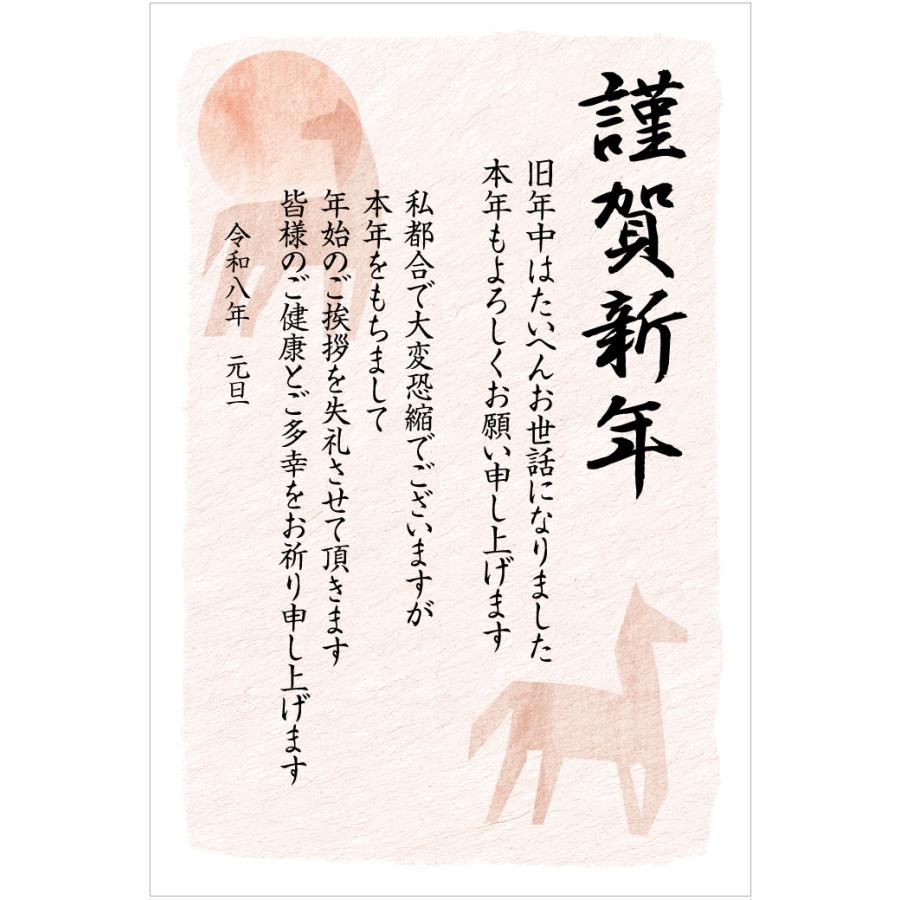 謹賀新年
旧年中はたいへんお世話になりました
本年もよろしくお願い申し上げます
私都合で大変恐縮でございますが
本年をもちまして
年始のご挨拶を失礼させて頂きます
皆様のご健康とご多幸をお祈り申し上げます
令和八年　元旦